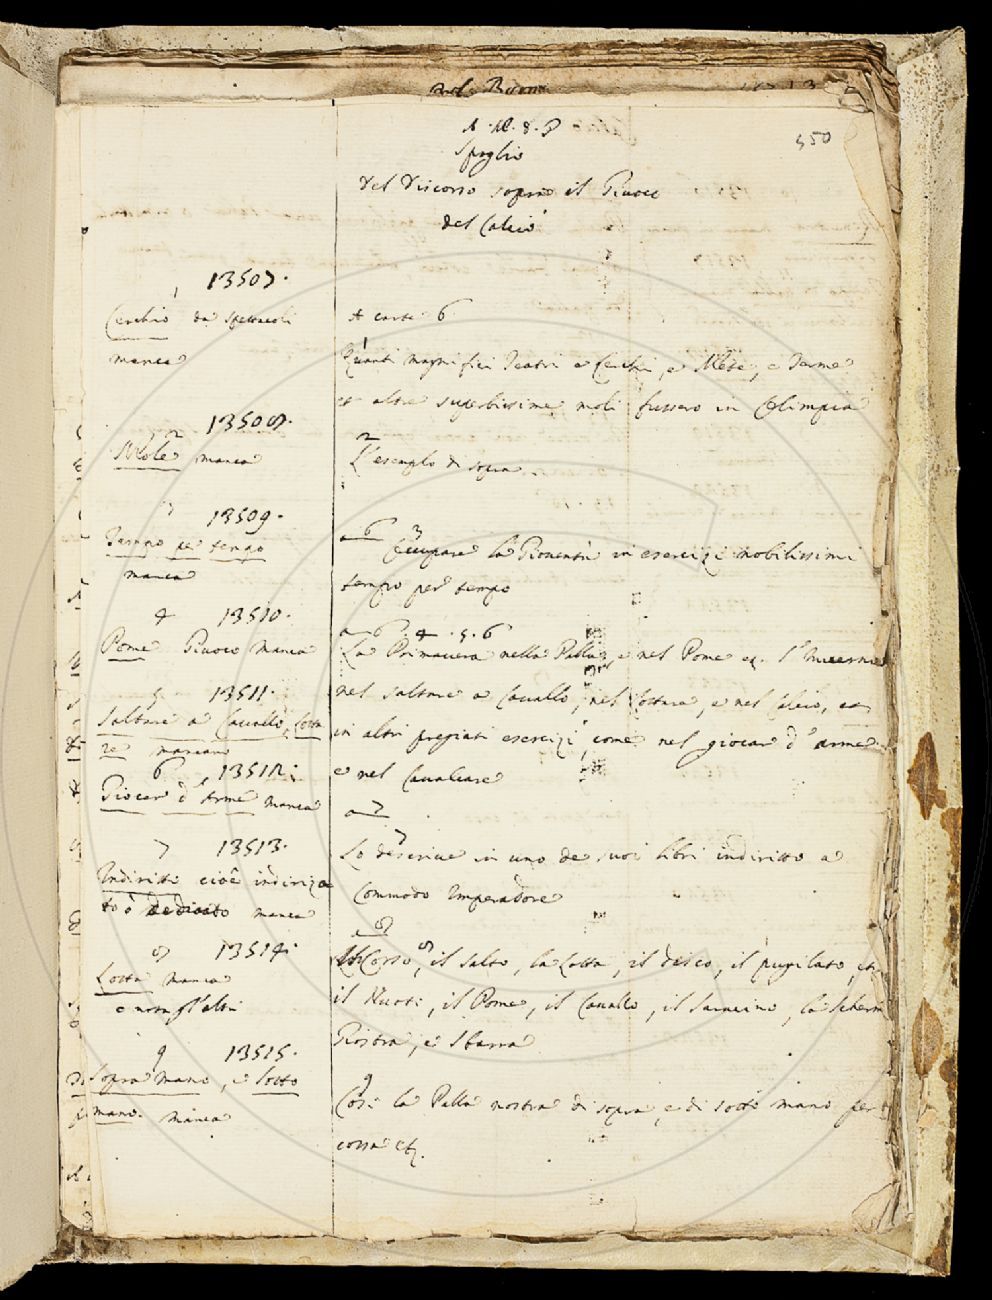 350
Spoglio
del Discorso sopra il Giuoco
del Calcio
13507.
1
Cerchio da spettacoli
manca
A carte 6
1
Quanti magnifici Teatri e Cerchi, e Mete, e Terme
et altre superbissime moli fussero in Olimpia
13508.
2
Mole manca
2
L'esemplo di sopra
3
13509.
Tempo per tempo
manca
a 6 3
Occupare la Gioventù in esercizi nobilissimi
tempo per tempo
4 13510.
Pome Giuoco manca
a 6. 4. 5. 6
La Primavera nella Palla, e nel Pome l'Inverno
nel saltare a Cavallo, nel lottare, e nel Calcio, et
in altri pregiati esercizi, come nel giocar d'arme
e nel Cavalcare
5 13511.
Saltare a Cavallo, Lotta
re mancano
6 13512.
Giocar d'Arme manca
a 7
7 13513.
Indiritto cioè indirizza
to ò dedicato manca
7
Lo descrive in uno de suoi libri indiritto a
Commodo Imperadore
a 8
8 13514.
Lotta manca
e non gl'altri
8
Il Corso, il salto, la Lotta, il disco, il pugilato, etc.
il Nuoto, il Pome, il Cavallo, il Saracino, la Scherm
Giostra, e Sbarra
9 13515.
Sopra mano, e sotto
mano. manca
9
Così la Palla nostra di sopra, e di sotto mano per
cossa etc.